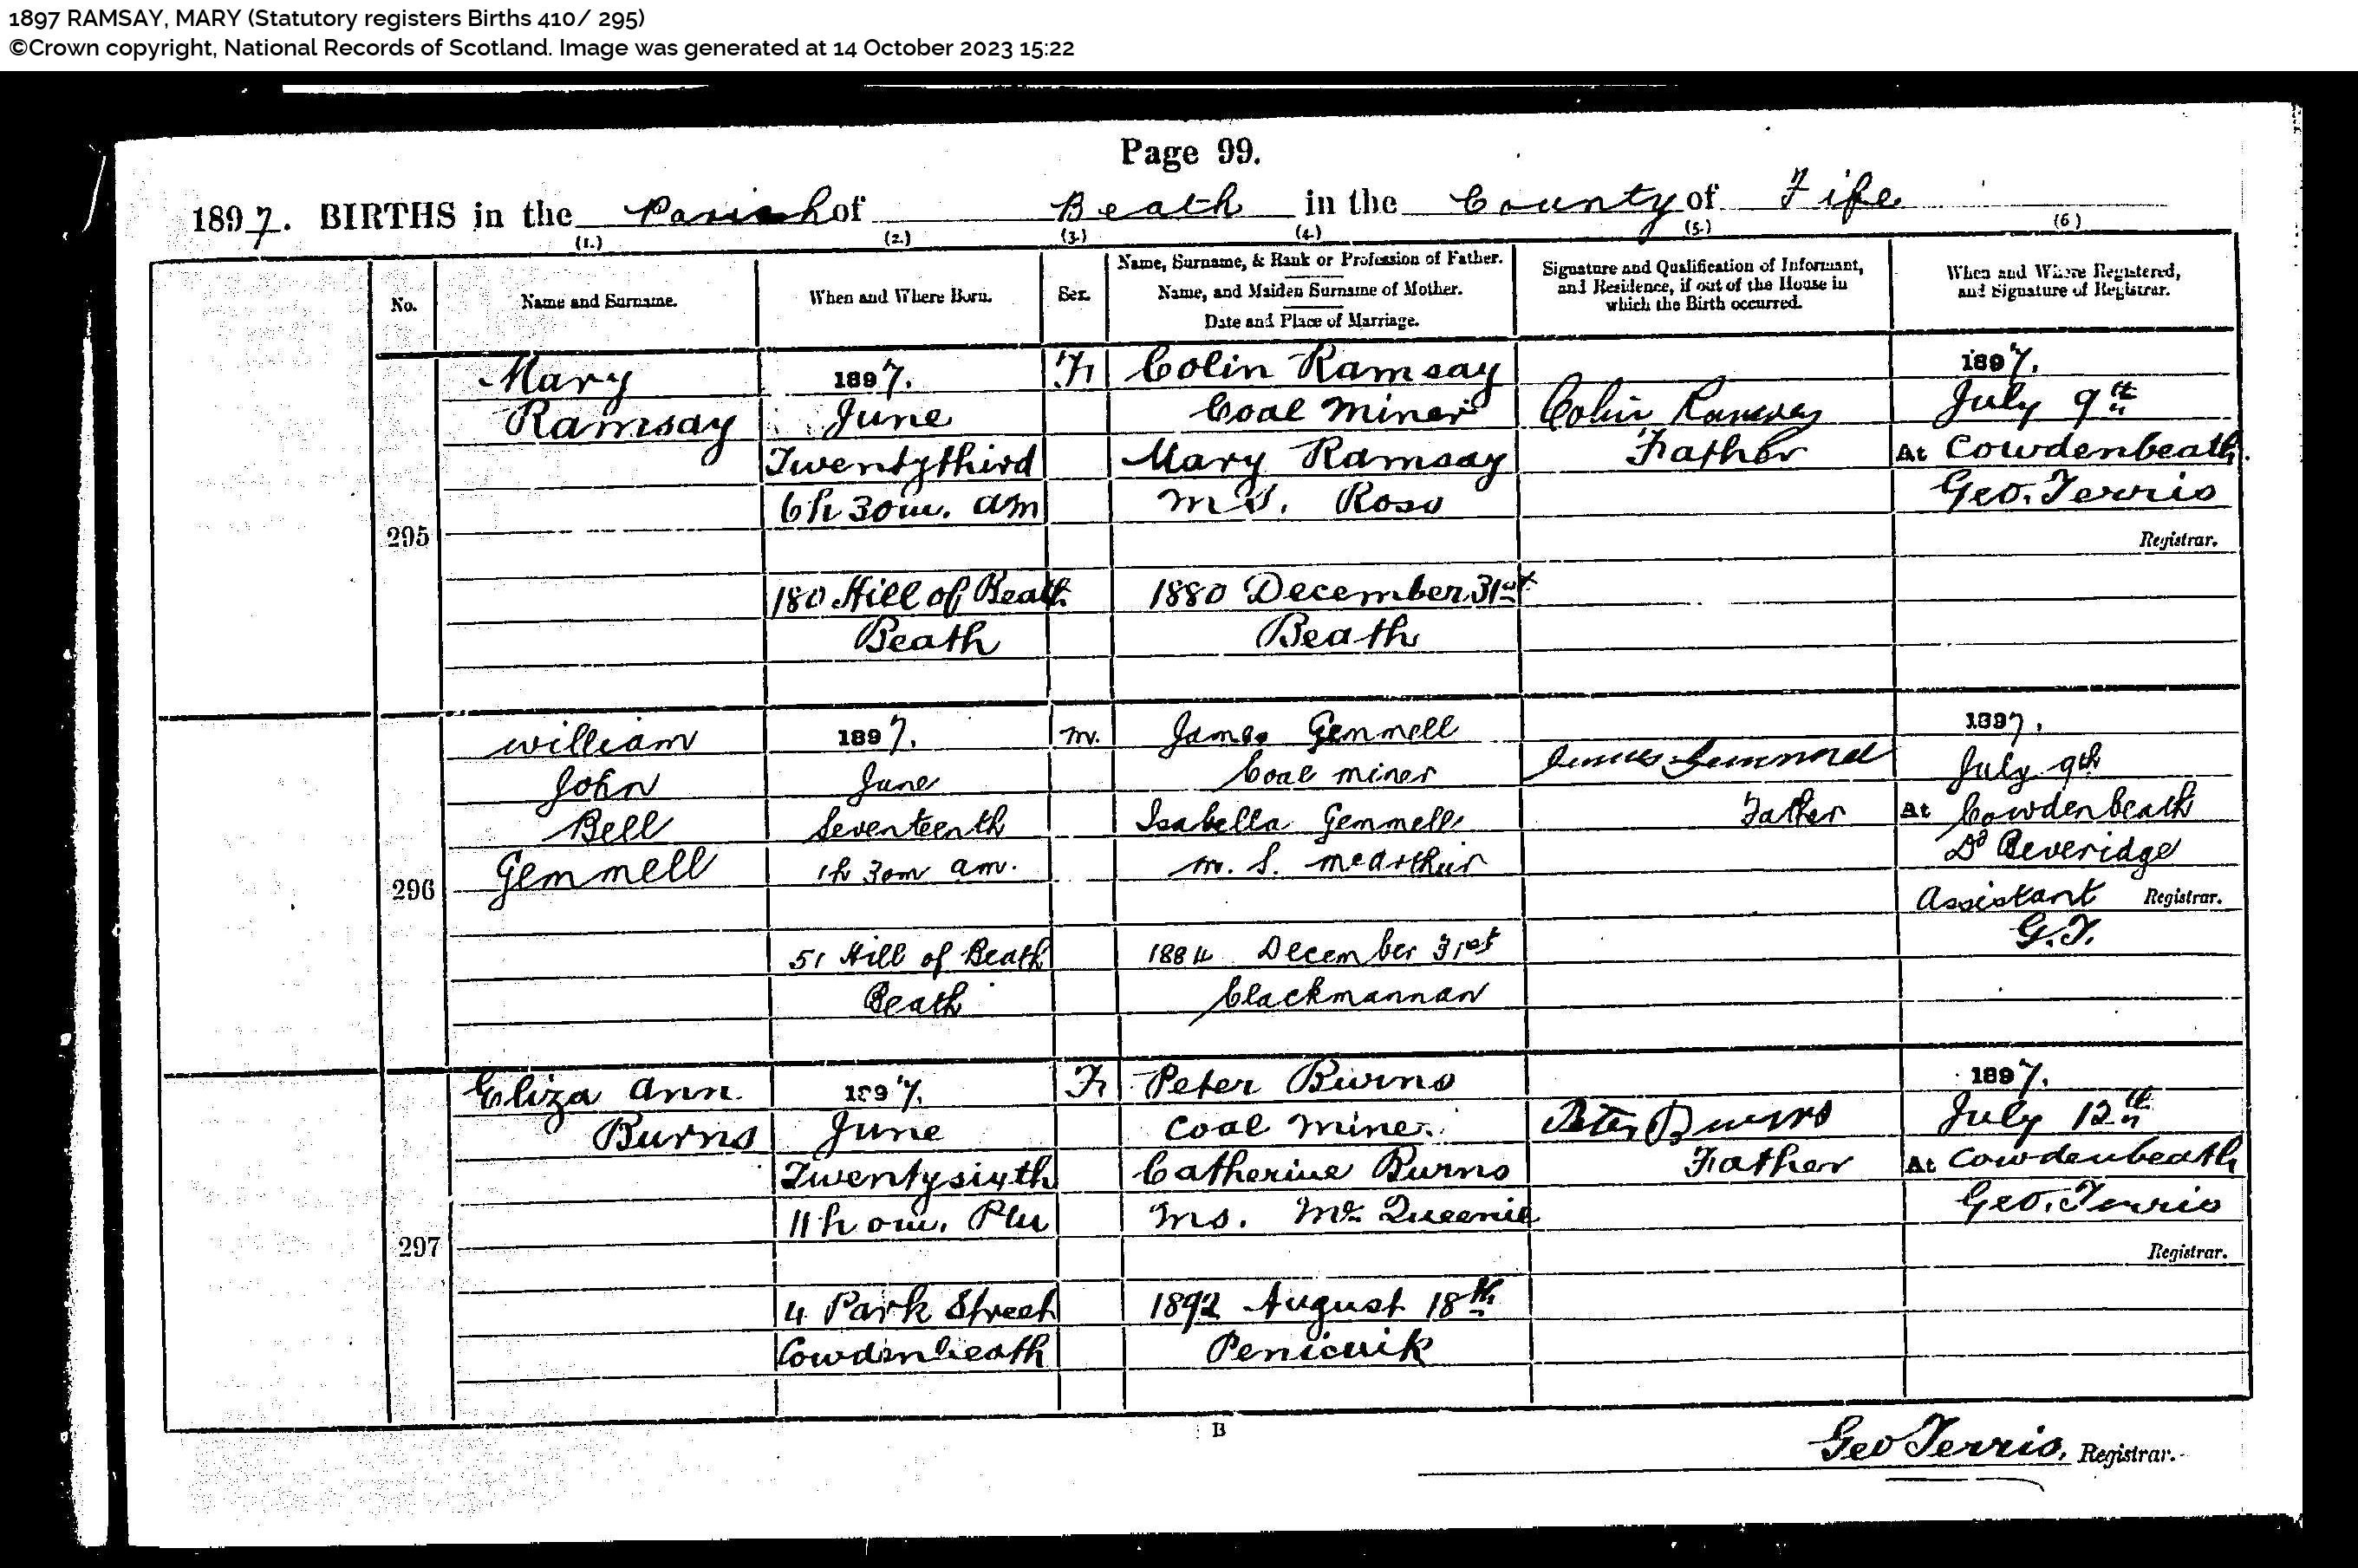 1897 RAMSAY, MARY (Statutory registers Births 410/ 295)
©Crown copyright, National Records of Scotland. Image was generated at 14 October 2023 15:22
Page 99.
1897. BIRTHS in the Parish of Beath in the County of Fife
(1.) (2.) (3.) (4.) (5.) (6)
No.
Name and Surname.
When and Where Born.
Sex.
Name, Surname, & Rank or Profession of Father.
Name, and Maiden Surname of Mother.
Date and Place of Marriage.
Signature and Qualification of Informant,
and Residence, if out of the House in
which the Birth occurred.
When and Where Registered,
and Signature of Registrar.
295
Mary
Ramsay
1897.
June
Twentythird
6h 30m. am
180 Hill of Beath
Beath
F
Colin Ramsay
Coal Miner
Mary Ramsay
M S. Ross
1880 December 31st
Beath
Colin Ramsay
Father
1897.
July 9th
At Cowdenbeath.
Geo. Terris
Registrar.
296
William
John
Bell
Gemmell
1897.
June
Seventeenth
1h 30m am.
51 Hill of Beath
Beath
M.
James Gemmell
Coal miner
Isabella Gemmell
m. S. McArthur
1884 December 31st
Clackmannan
James
Father
1897.
July 9th
At Cowdenbeath
Dd Beveridge
Assistant Registrar.
G.T.
297
Eliza Ann
Burns
1897.
June
Twentysixth
11h 0m. PM
4 Park Street
Cowdenbeath
F
Peter Burns
Coal Miner
Catherine Burns
Ms. Mc Queenie
1892 August 18th
Penicuik
Peter Burns
Father
1897.
July 12th
At Cowdenbeath
Geo. Terris
Registrar.
B
Geo Terris, Registrar.